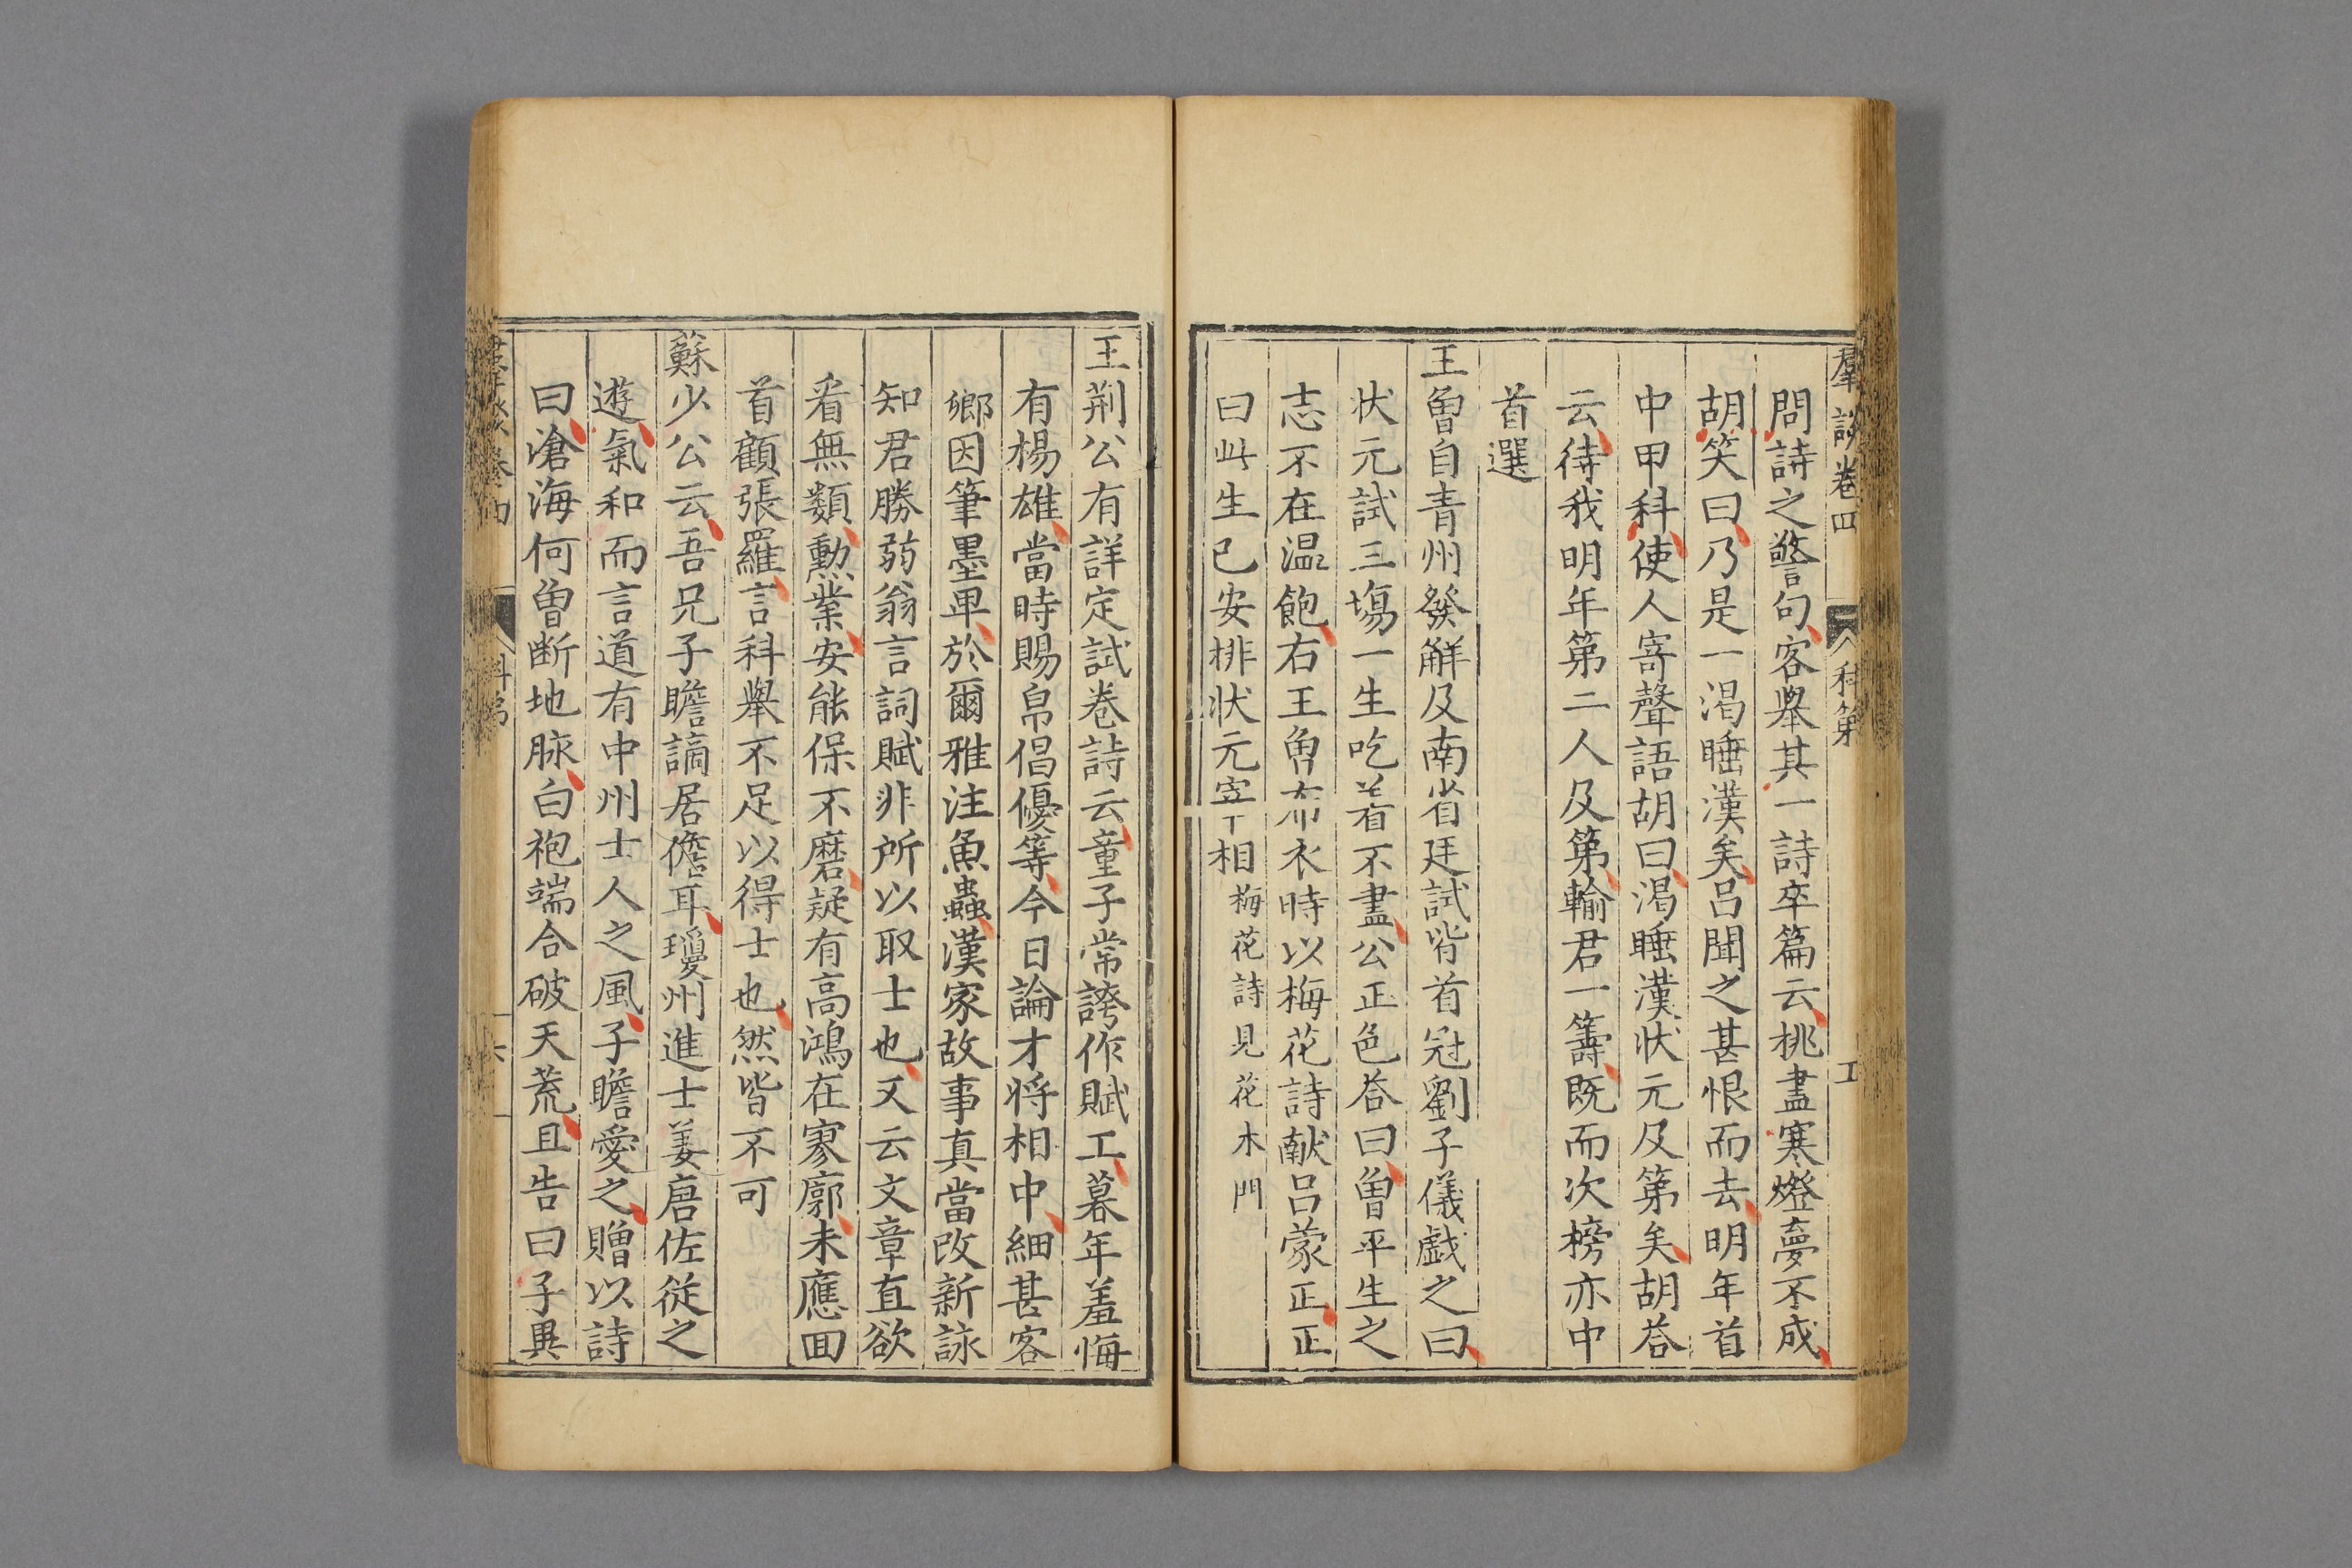 羣談卷四 科第
問詩之警句客舉其一詩卒篇云挑盡寒燈夢不成
胡笑曰乃是一渴睡漢矣呂聞之甚恨而去明年首
中甲科使人寄聲語胡曰渴睡漢状元及第矣胡荅
云待我明年第二人及第輸君一籌既而次榜亦中
首選
王曽自青州發觧及南省廷試皆首冠劉子儀戯之曰
状元試三塲一生吃着不盡公正色荅曰曽平生之
志不在温飽右王曽布衣時以梅花詩献呂蒙正正
曰此生已安排状元宰相梅花詩見花木門
王荆公有詳定試卷詩云童子常誇作賦工暮年羞悔
有楊雄當時賜帛倡優等今日論才将相中細甚客
鄉因筆墨卑於爾雅注魚蟲漢家故事真當改新詠
知君勝弱翁言詞賦非所以取士也又云文章直欲
看無類勲業安能保不磨疑有高鴻在寥廓未應囬
首顧張羅言科舉不足以得士也然皆不可
蘇少公云吾兄子瞻謫居儋耳瓊州進士姜唐佐従之
遊氣和而言道有中州士人之風子瞻愛之贈以詩
曰滄海何曽断地脉白袍端合破天荒且告曰子異
卷四 科第